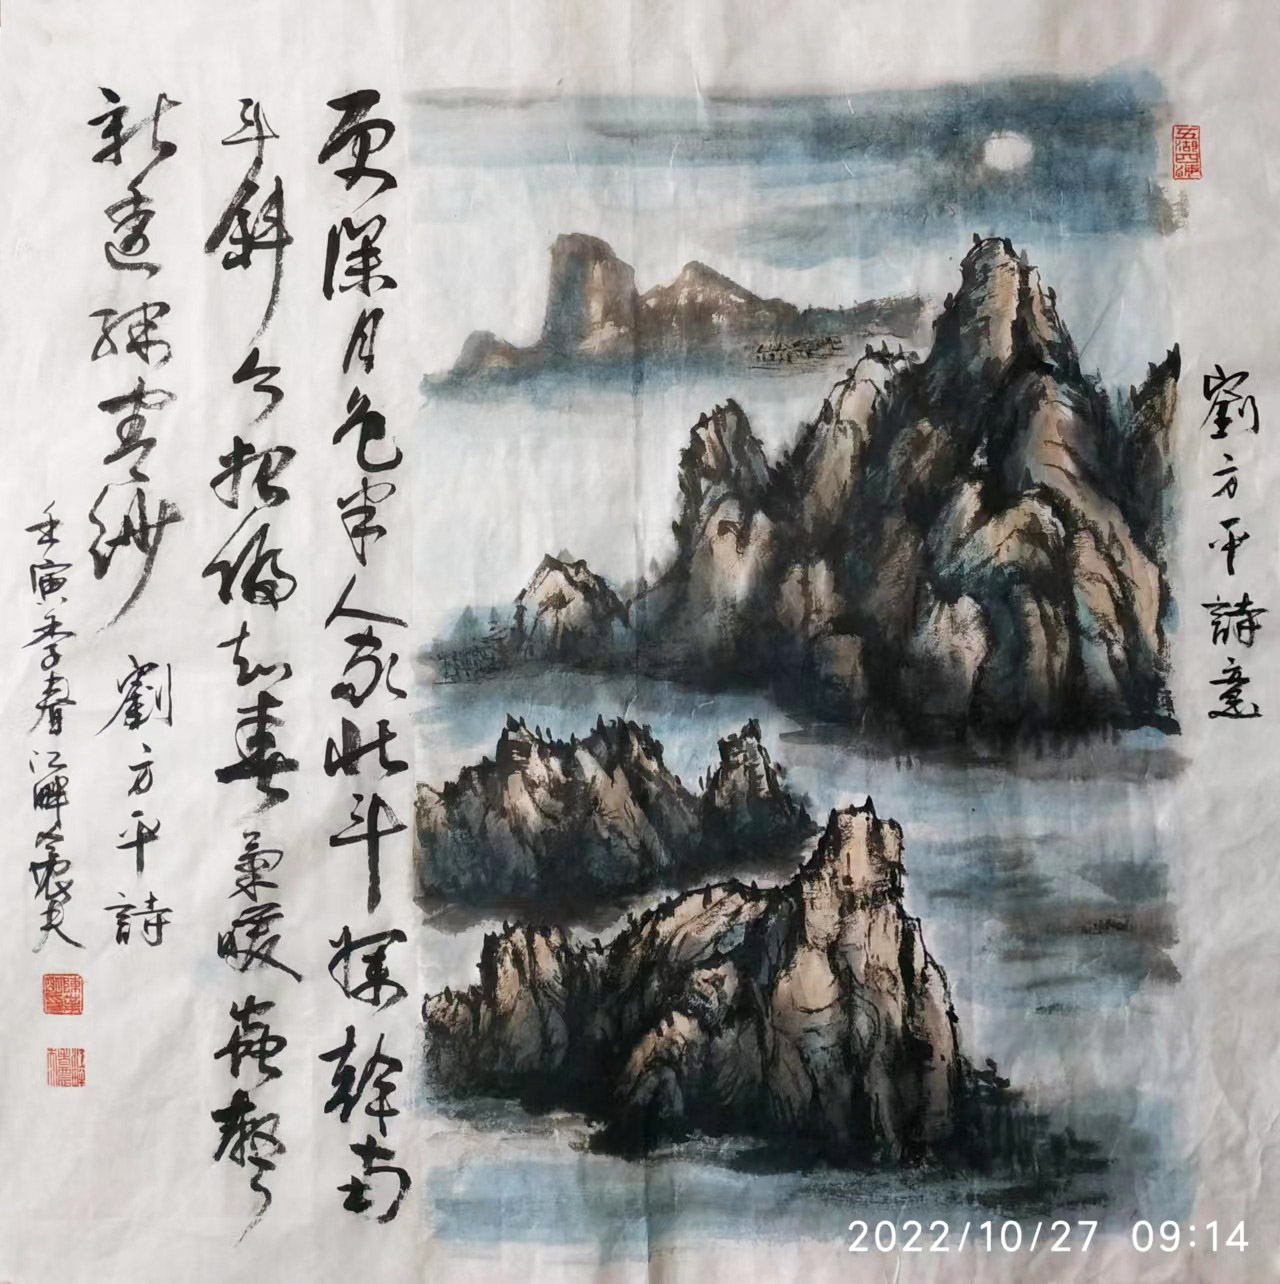 劉方平詩意
五湖四海
更深月色半人家北斗幹南
斗斜今夜偏知春氣暖蟲聲
新透綠窗紗
劉方平詩
壬寅季春江畔農夫
2022/10/27 09:14